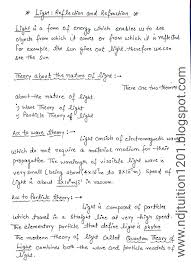 * Light: Reflection and Refraction *
Light is a form of energy which enables us to see
objects from which it comes or from which it is reflected
for example, the sun gives out light, therefore we can see
the sun
Theory about the nature of light :-
There are two theories
about the nature of light
1) Wave Theory of light
2) Particle Theory of light
Ac to wave theory :-
Light consists of electromagnetic
which do not require a material medium for their
propagation. The wavelength of visible light wave is
very small (being about 4x10⁻⁷m to 8x10⁻⁷m). Speed of
Light is about 3x10⁸ m/s in vacuum.
Ac to Particle theory :-
Light is composed of particles
which travel in a straight line at very high speed.
The elementary particle that defines light is photon
The modern theory of light called Quantum Theory of
Light combines both the wave and particle models
www.djtuition12011.blogspot.com